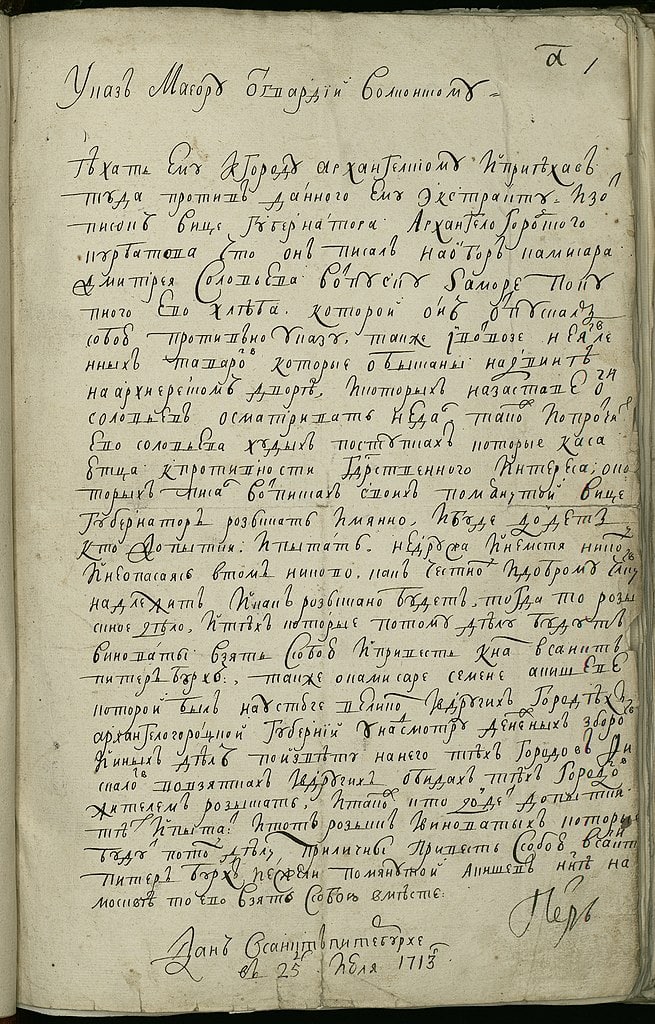 а 1
Указъ Маеору Отгвардіи Волконскому
ѣхать Ему Кгороду архангелскому Иприѣхавъ
туда противъ данного Ему Экстракту Изо
писемъ вице Губернатора Архангелогородцкого
курбатова что онъ писалъ наобЪръ камисара
дмитрея Соловьева вопуску Заморе поку
пного Ево хлѣба. которой онъ отпускалъ
собою противно указу, також Іопровозе неявле
нныхъ таваровъ которые обысканы
наархиерѣйскомъ дворѣ, Икоторыхъ
соловьевъ осматривать недалъ такожъ Ипротчихъ
Ево соловьева худыхъ поступкахъ которые каса
ютца кпротивности Гдрственного Интереса; око
торыхъ писалъ вописмахъ своихъ помянутый вице
Губернаторъ розыскать Имянно, Ибуде доидетъ
кто допытки, Ипытать, недружа Инемстя никому
Инеопасаясь втомъ никово, какъ честному Идоброму
надлежитъ Икакъ розыскано будетъ, тогда то розы
скное дѣло, Итѣхъ которые потому дѣлу будутъ
виноваты взять Ссобою Ипривесть Кнам всанктъ
питеръ бурхъ, также окамисаре семене акишеве
которой былъ наустюге великом Ивдругихъ Городѣхъ
архангелогороцкой Губерніи унасмотру денежныхъ зборовъ
Ииныхъ дѣлъ поизвѣту нанего тѣхъ Городовъ
вовзяткахъ Ивдругихъ обидахъ тѣхъ Городовъ
жителемъ розыскать, Итакожъ кто доидетъ допытки
тѣхъ Ипытать Ипотомъ розыскъ Ивиноватыхъ которые
будутъ потому дѣлу приличны Привесть Ссобою всанкт
питеръ бурхъ, Ежели помянутой Акишевъ ннѣ на
москвѣ то ево взять Ссобою вмѣсте:
Петръ
Данъ Всанктъпитербурхе
въ 25 Июля 1713